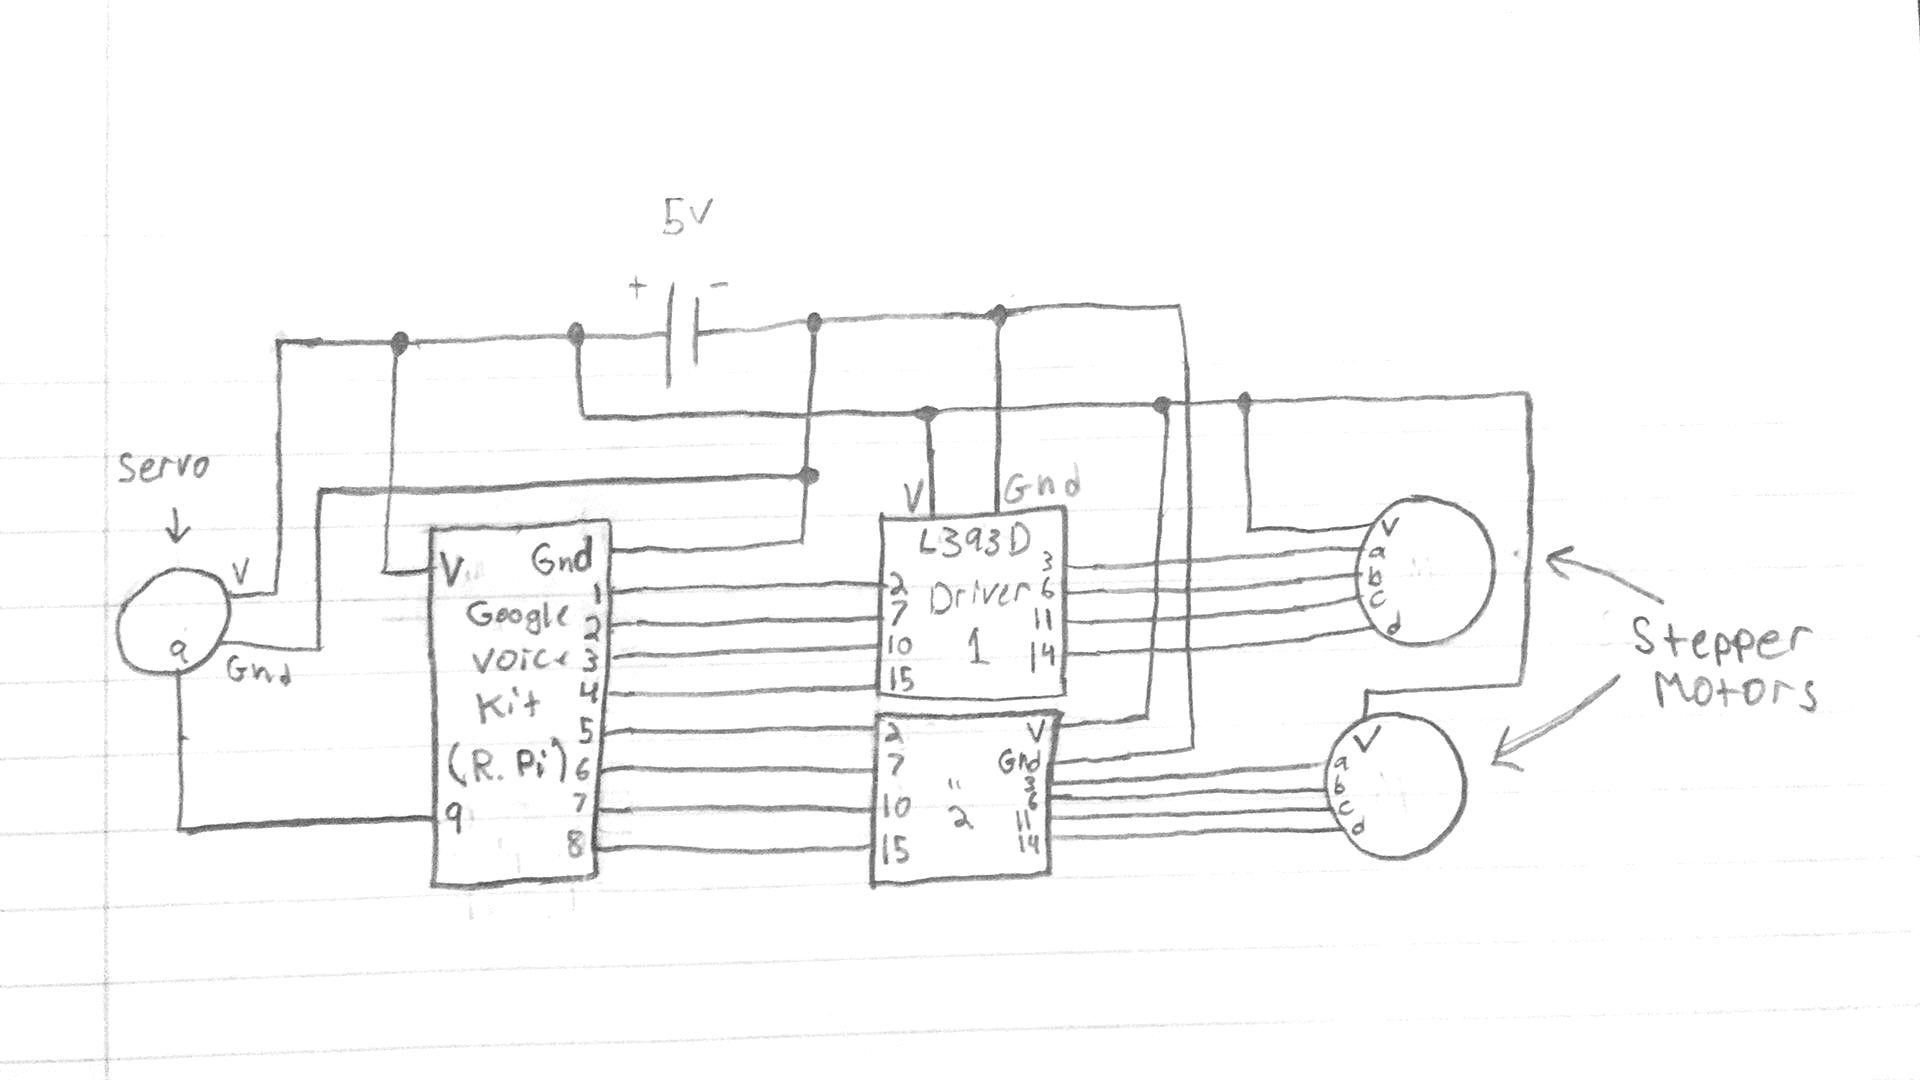 5V
+ -
Servo
V
a
Gnd
V Gnd
Google
Voice
Kit
(R. Pi)
1
2
3
4
5
6
7
8
9
V Gnd
L393D
Driver
1
2
7
10
15
3
6
11
14
2
7
10
15
"
2
V
Gnd
3
6
11
14
V
a
b
c
d
V
a
b
c
d
Stepper
Motors